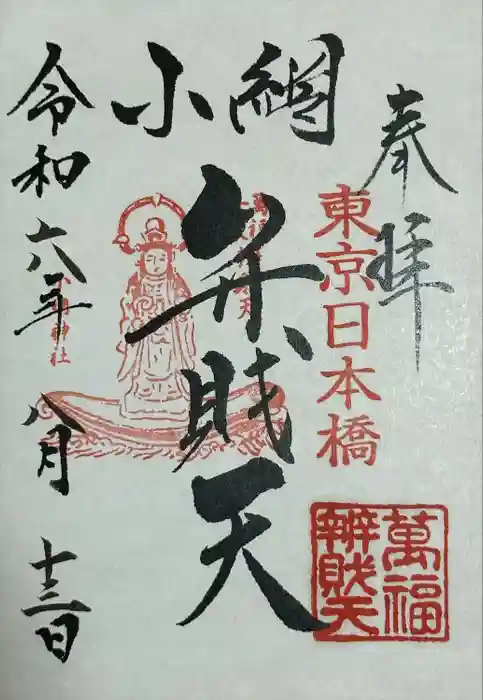 奉拝
東京日本橋
小網
弁財天
萬福
辨財天
神社
令和六年八月十三日